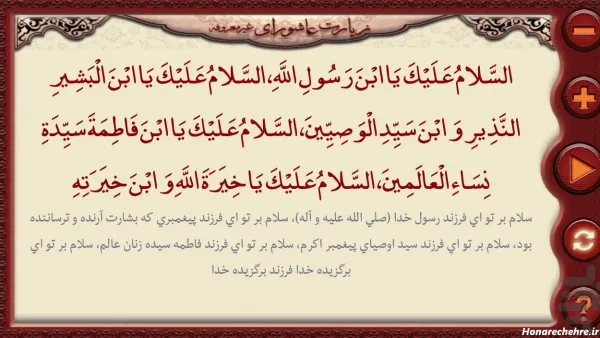 زیارت عاشورای غیر معروفه
السَّلامُ عَلَيْكَ يَا ابْنَ رَسُولِ اللَّهِ، السَّلامُ عَلَيْكَ يَا ابْنَ الْبَشِيرِ
النَّذِيرِ وَ ابْنَ سَيِّدِ الْوَصِيِّينَ، السَّلامُ عَلَيْكَ يَا ابْنَ فَاطِمَةَ سَيِّدَةِ
نِسَاءِ الْعَالَمِينَ، السَّلامُ عَلَيْكَ يَا خِيَرَةَ اللَّهِ وَ ابْنَ خِيَرَتِهِ
سلام بر تو اي فرزند رسول خدا (صلي الله عليه و آله)، سلام بر تو اي فرزند پيغمبري كه بشارت آرنده و ترساننده
بود، سلام بر تو اي فرزند سيد اوصياي پيغمبر اكرم، سلام بر تو اي فرزند فاطمه سيده زنان عالم، سلام بر تو اي
برگزيده خدا فرزند برگزيده خدا
Honarechehre.ir